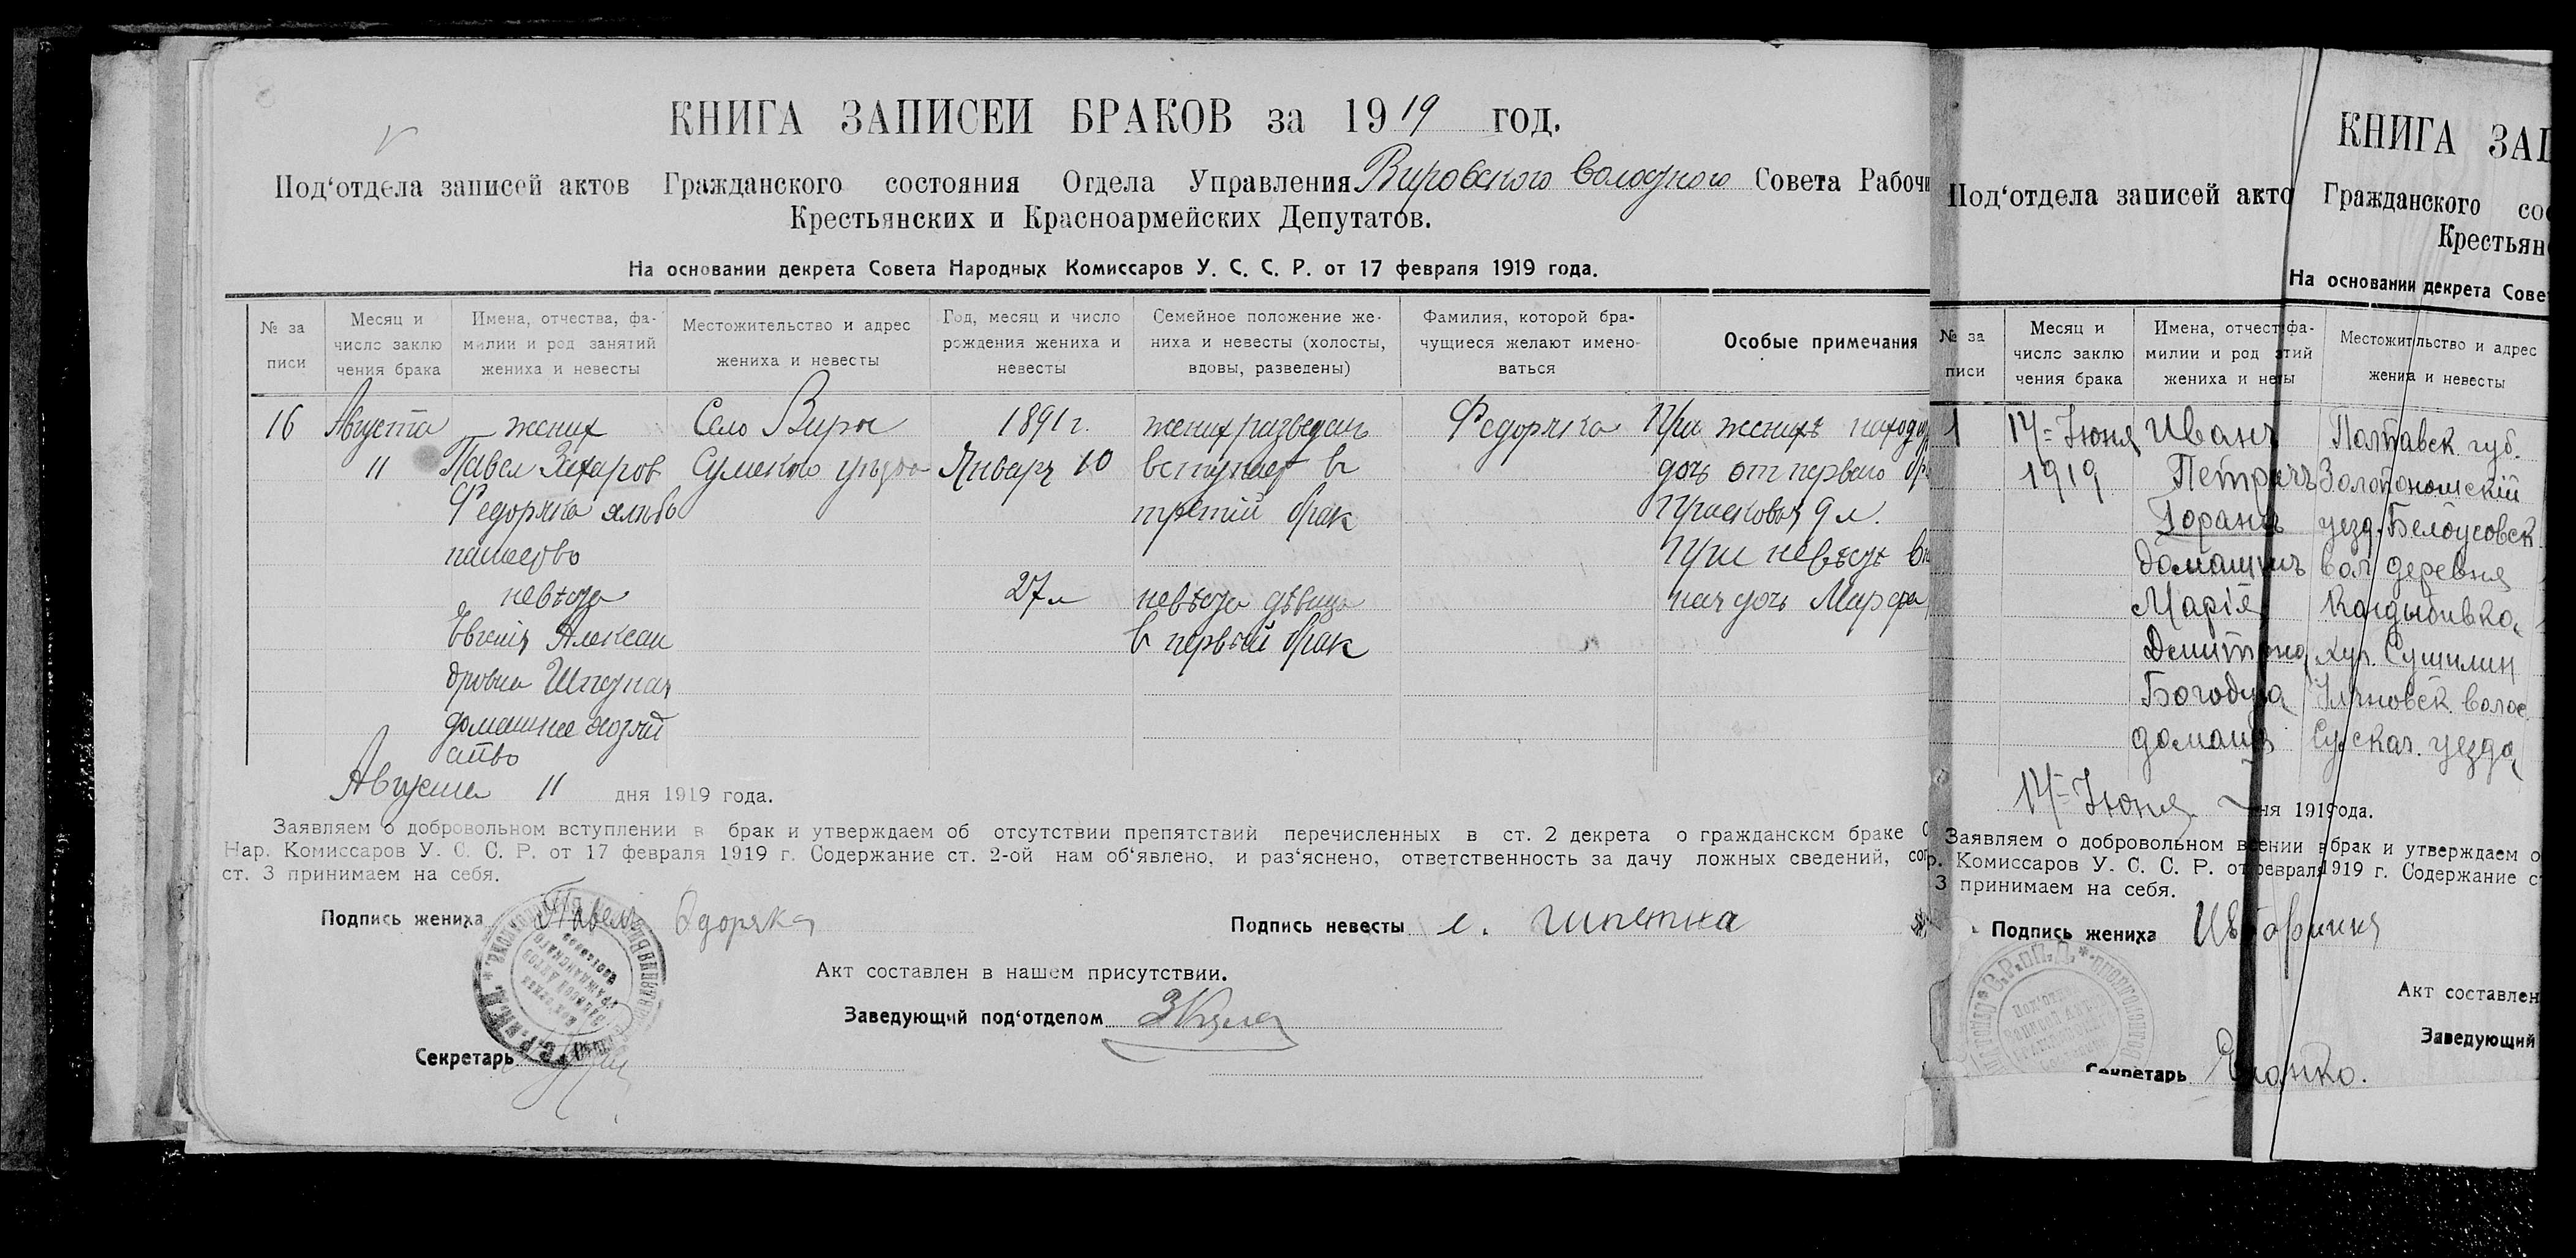 КНИГА ЗАПИСЕЙ БРАКОВ за 1919 год.
Под‘отдела записей актов Гражданского состояния Отдела Управления Вировского волостного Совета Рабочи
Крестьянских и Красноармейских Депутатов.
На основании декрета Совета Народных Комиссаров У. С. С. Р. от 17 февраля 1919 года.
№ за писи
Месяц и число заклю чения брака
Имена, отчества, фа- милии и род занятий жениха и невесты
Местожительство и адрес жениха и невесты
Год, месяц и число рождения жениха и невесты
Семейное положение же- ниха и невесты (холосты, вдовы, разведены)
Фамилия, которой бра- чущиеся желают имено- ваться
Особые примечания
16 Августа жених Село Виры 1891 г. жених разведен Федоряка При женихъ находи
11 Павел Захаров Сумского уезда Январь 10 вступает в дочь от первого бр
Федоряка хлебо третий брак Прасковья 9 л.
пашество При невѣсте
невѣста 27 л невѣста дѣвица ная дочь Марфа
Евгенія Алексан в первый брак
дровна Шпетная
домашнее хозяй
ство
Августа 11 дня 1919 года.
Заявляем о добровольном вступлении в брак и утверждаем об отсутствии препятствий перечисленных в ст. 2 декрета о гражданском браке С
Нар. Комиссаров У. С. С. Р. от 17 февраля 1919 г. Содержание ст. 2-ой нам об‘явлено, и раз‘яснено, ответственность за дачу ложных сведений, сог
ст. 3 принимаем на себя.
Подпись жениха Павел Ѳдоряка
Подпись невесты е. шпетна
Акт составлен в нашем присутствии.
Заведующий под‘отделом
Секретарь
КНИГА ЗАП
Под‘отдела записей акто Гражданского сос
Крестьян
На основании декрета Сове
№ за писи
Месяц и число заклю чения брака
Имена, отчест фа- милии и род ятий жениха и не ты
Местожительство и адрес жениха и невесты
1 14 = Июня Иванъ Полтавск. губ.
1919 Золотоношскій
уезд. Белоусовск.
вол деревня
Марія
хут. Сушилин
Богодица волос.
уезда
14 = Июня ня 1919 ода.
Заявляем о добровольном в ении в брак и утверждаем о
р. Комиссаров У. С. С. Р. от февраля 1919 г. Содержание с
3 принимаем на себя.
Подпись жениха
Акт составлен
Заведующий
Секретарь